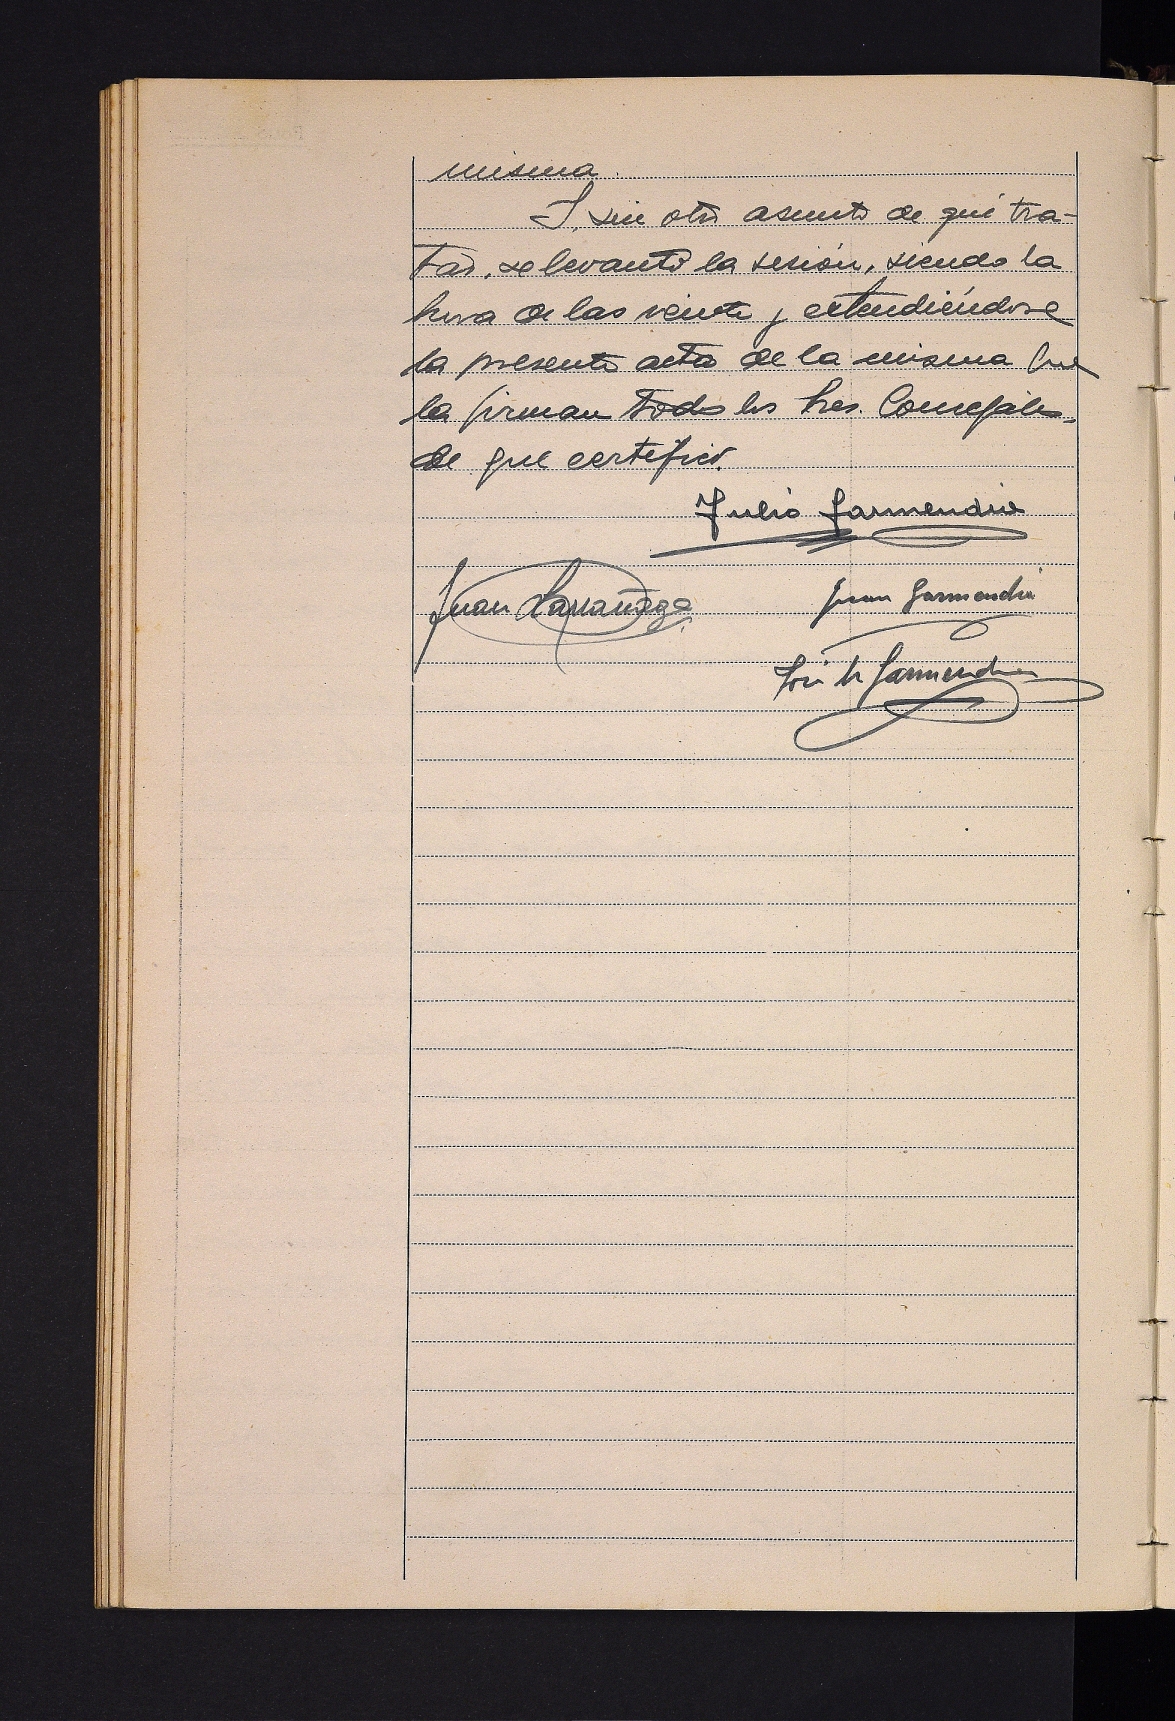 misma.
Y, sin otro asunto de que tra-
tar, se levantó la sesión, siendo la
hora de las veinte y extendiéndose
la presente acta de la misma que
la firman todos los Sres. Concejales,
de que certifico.
Julio Garmendia
Juan Larrañaga Juan Garmendia
José M Garmendia